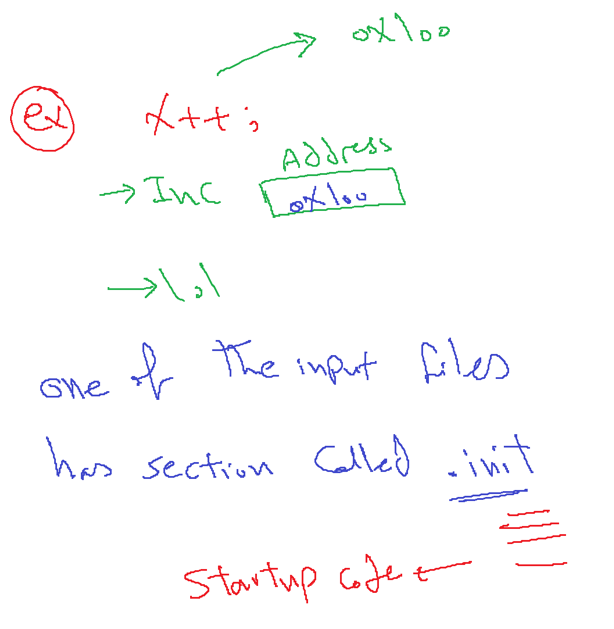 0x100
ex x++;
Address
→ Inc 0x100
→ 101
one of the input files
has section called .init
Startup code ←